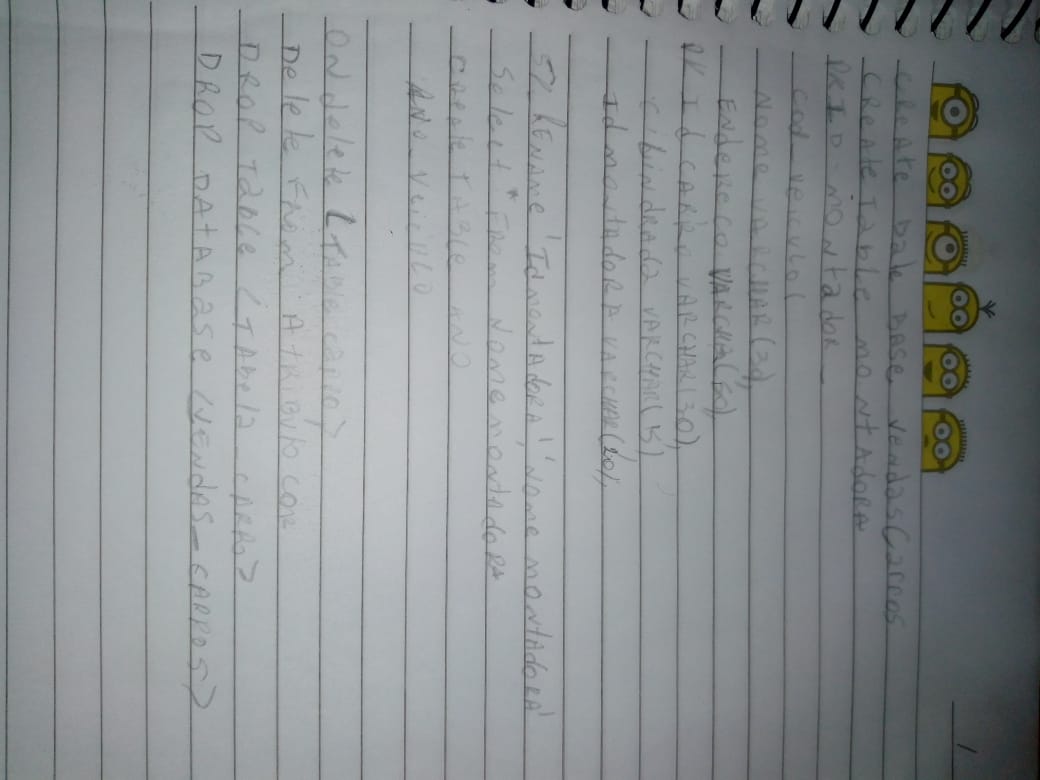 CREATE Date BASE vendas Carros
CREATE Table montadora
PRID-montador
cod-veiculo(
Nome VARCHAR(30)
ENDEREÇO VARCHA(50),
PK Id CARRO VARCHAR(30),
Cibindrada VARCHAR(15)
Id montadora VARCHAR(20),
5% RENAME 'Idmentadora', 'Nome montadora'
Select * From Nomemontadora
create TABLE ANO
ANO-veiculo
ON delete (Tabela carro)
Delete From ATRIBUTO COR
DROP Table <TAbela CARRO>
DROP DATABASE <VENDAS-CARROS>